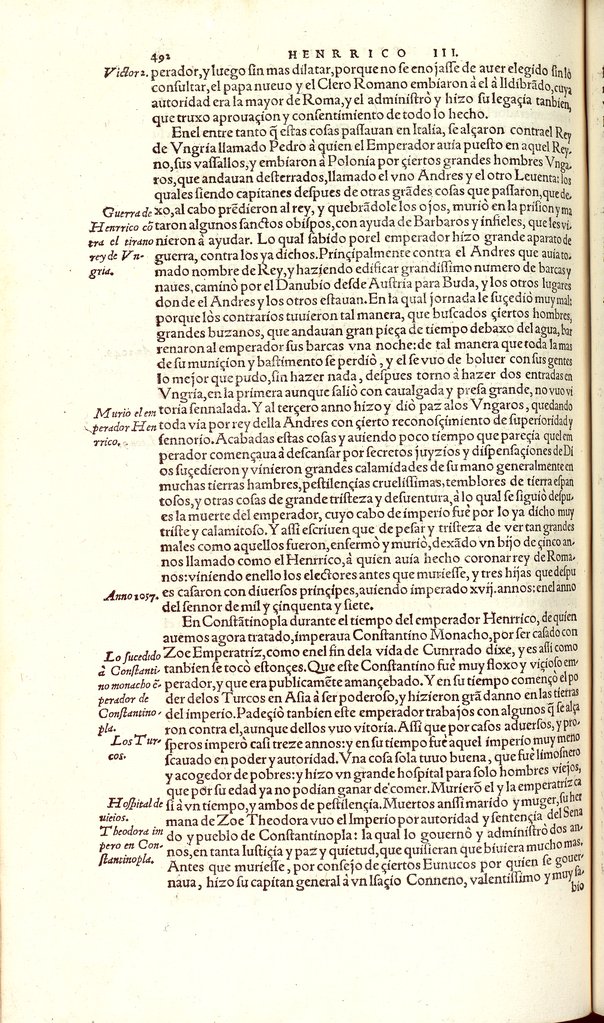 492
HENRRICO III.
Victor 2.
perador, y luego ſin mas dilatar, porque no ſe enojaſſe de auer elegido ſin lò
conſultar, el papa nueuo y el Clero Romano embiaron à el à Ildibrãdo, cuya
autoridad era la mayor de Roma, y el adminiſtrò y hizo ſu legaçia tanbien,
que truxo aprouaçion y conſentimiento de todo lo hecho.
En el entre tanto q̃ eſtas coſas paſſauan en Italia, ſe alçaron contra el Rey
de Vngria llamado Pedro à quien el Emperador auia pueſto en aquel Rey-
no, ſus vaſſallos, y embiaron à Polonia por çiertos grandes hombres Vnga-
ros, que andauan deſterrados, llamado el vno Andres y el otro Leuenta: los
quales ſiendo capitanes deſpues de otras grãdes coſas que paſſaron, que de-
Guerra de
Henrrico cõ
tra el tirano
rey de Vn-
gria.
xo, al cabo prẽdieron al rey, y quebrãdole los ojos, muriò en la priſion y ma
taron algunos ſanctos obiſpos, con ayuda de Barbaros y infieles, que les vi-
nieron à ayudar. Lo qual ſabido por el emperador hizo grande aparato de
guerra, contra los ya dichos. Prinçipalmente contra el Andres que auia to-
mado nombre de Rey, y haziendo edificar grandiſſimo numero de barcas y
naues, caminò por el Danubio deſde Auſtria para Buda, y los otros lugares
donde el Andres y los otros eſtauan. En la qual jornada le ſuçediò muy mal:
porque los contrarios tuuieron tal manera, que buſcados çiertos hombres,
grandes buzanos, que andauan gran pieça de tiempo debaxo del agua, bar
renaron al emperador ſus barcas vna noche: de tal manera que toda la mas
de ſu muniçion y baſtimento ſe perdiò, y el ſe vuo de boluer con ſus gentes
lo mejor que pudo, ſin hazer nada, deſpues torno à hazer dos entradas en
Vngria, en la primera aunque ſaliò con caualgada y preſa grande, no vuo vi
Murio el em
perador Hen
rrico.
toria ſennalada. Y al terçero anno hizo y diò paz a los Vngaros, quedando
toda via por rey della Andres con çierto reconoſçimiento de ſuperioridad y
ſennorio. Acabadas eſtas coſas y auiendo poco tiempo que pareçia quel em
perador començaua à deſcanſar por ſecretos juyzios y diſpenſaçiones de Di
os ſuçedieron y vinieron grandes calamidades de ſu mano generalmente en
muchas tierras hambres, peſtilençias crueliſſimas, temblores de tierra eſpan
toſos, y otras coſas de grande triſteza y deſuentura, à lo qual ſe ſiguiò deſpu-
es la muerte del emperador, cuyo cabo de imperio fuè por lo ya dicho muy
triſte y calamitoſo. Y aſſi eſcriuen que de peſar y triſteza de ver tan grandes
males como aquellos fueron, enfermò y muriò, dexãdo vn hijo de çinco an-
nos llamado como el Henrrico, à quien auia hecho coronar rey de Roma-
nos: viniendo en ello los electores antes que murieſſe, y tres hijas que deſpu
Anno 1057.
es caſaron con diuerſos prinçipes, auiendo imperado xvij. annos: en el anno
del ſennor de mil y çinquenta y ſiete.
En Conſtãtinopla durante el tiempo del emperador Henrrico, de quien
auemos agora tratado, imperaua Conſtantino Monacho, por ſer caſado con
Lo ſucedido
à Conſtanti-
no monacho ẽ-
perador de
Conſtantino-
pla.
Zoe Emperatriz, como en el fin de la vida de Cunrrado dixe, y es aſsi como
tanbien ſe tocò eſtonçes. Que eſte Conſtantino fuè muy floxo y viçioſo em-
perador, y que era publicamẽte amançebado. Y en ſu tiempo començò el po
der de los Turcos en Aſia à ſer poderoſo, y hizieron grã danno en las tierras
del imperio. Padeçiò tanbien eſte emperador trabajos con algunos q̃ ſe alça
ron contra el, aunque dellos vuo vitoria. Aſſi que por caſos aduerſos, y pro-
Los Tur-
cos.
ſperos imperò caſi treze annos: y en ſu tiempo fuè aquel imperio muy meno
ſcauado en poder y autoridad. Vna coſa ſola tuuo buena, que fuè limoſnero
y acogedor de pobres: y hizo vn grande hoſpital para ſolo hombres viejos,
que por ſu edad ya no podian ganar de comer. Murierõ el y la emperatriz ca
Hoſpital de
vieios.
ſi à vn tiempo, y ambos de peſtilençia. Muertos anſſi marido y muger, ſu her
mana de Zoe Theodora vuo el Imperio por autoridad y ſentençia del Sena
Theodora im
pero en Con-
ſtantinopla.
do y pueblo de Conſtantinopla: la qual lo gouernò y adminiſtrò dos an-
nos, en tanta Iuſtiçia y paz y quietud, que quiſieran que biuiera mucho mas.
Antes que murieſſe, por conſejo de çiertos Eunucos por quien ſe gouer-
naua, hizo ſu capitan general à vn Iſaçio Conneno, valentiſſimo y muy ſa-
bio